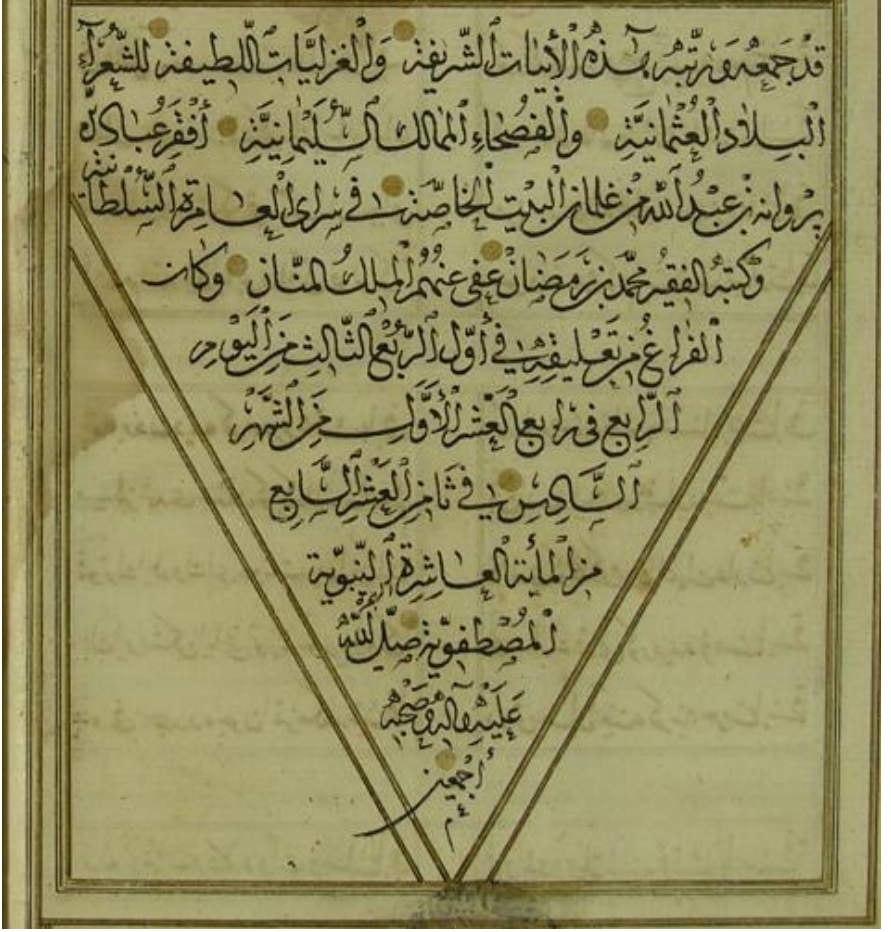 قد جمعه ورتبه بهذه الأبيات الشريفة والغزليات اللطيفة للشعراء
البلاد العثمانية والفصحاء الممالك السليمانية أفقر عباد الله
پروانه بن عبد الله من غلمان البيت الخاصة في سراى العامرة السلطانية
وكتبه الفقير محمد بن رمضان عفى عنهم الملك المنان وكان
الفراغ من تعليقه في أول الربع الثالث من اليوم
الرابع في رابع العشر الأول من الشهر
السادس في ثامن العشر السابع
من المأئة العاشرة النبوية
المصطفوية صلى الله
عليه وآله وصحبه
أجمعين
م